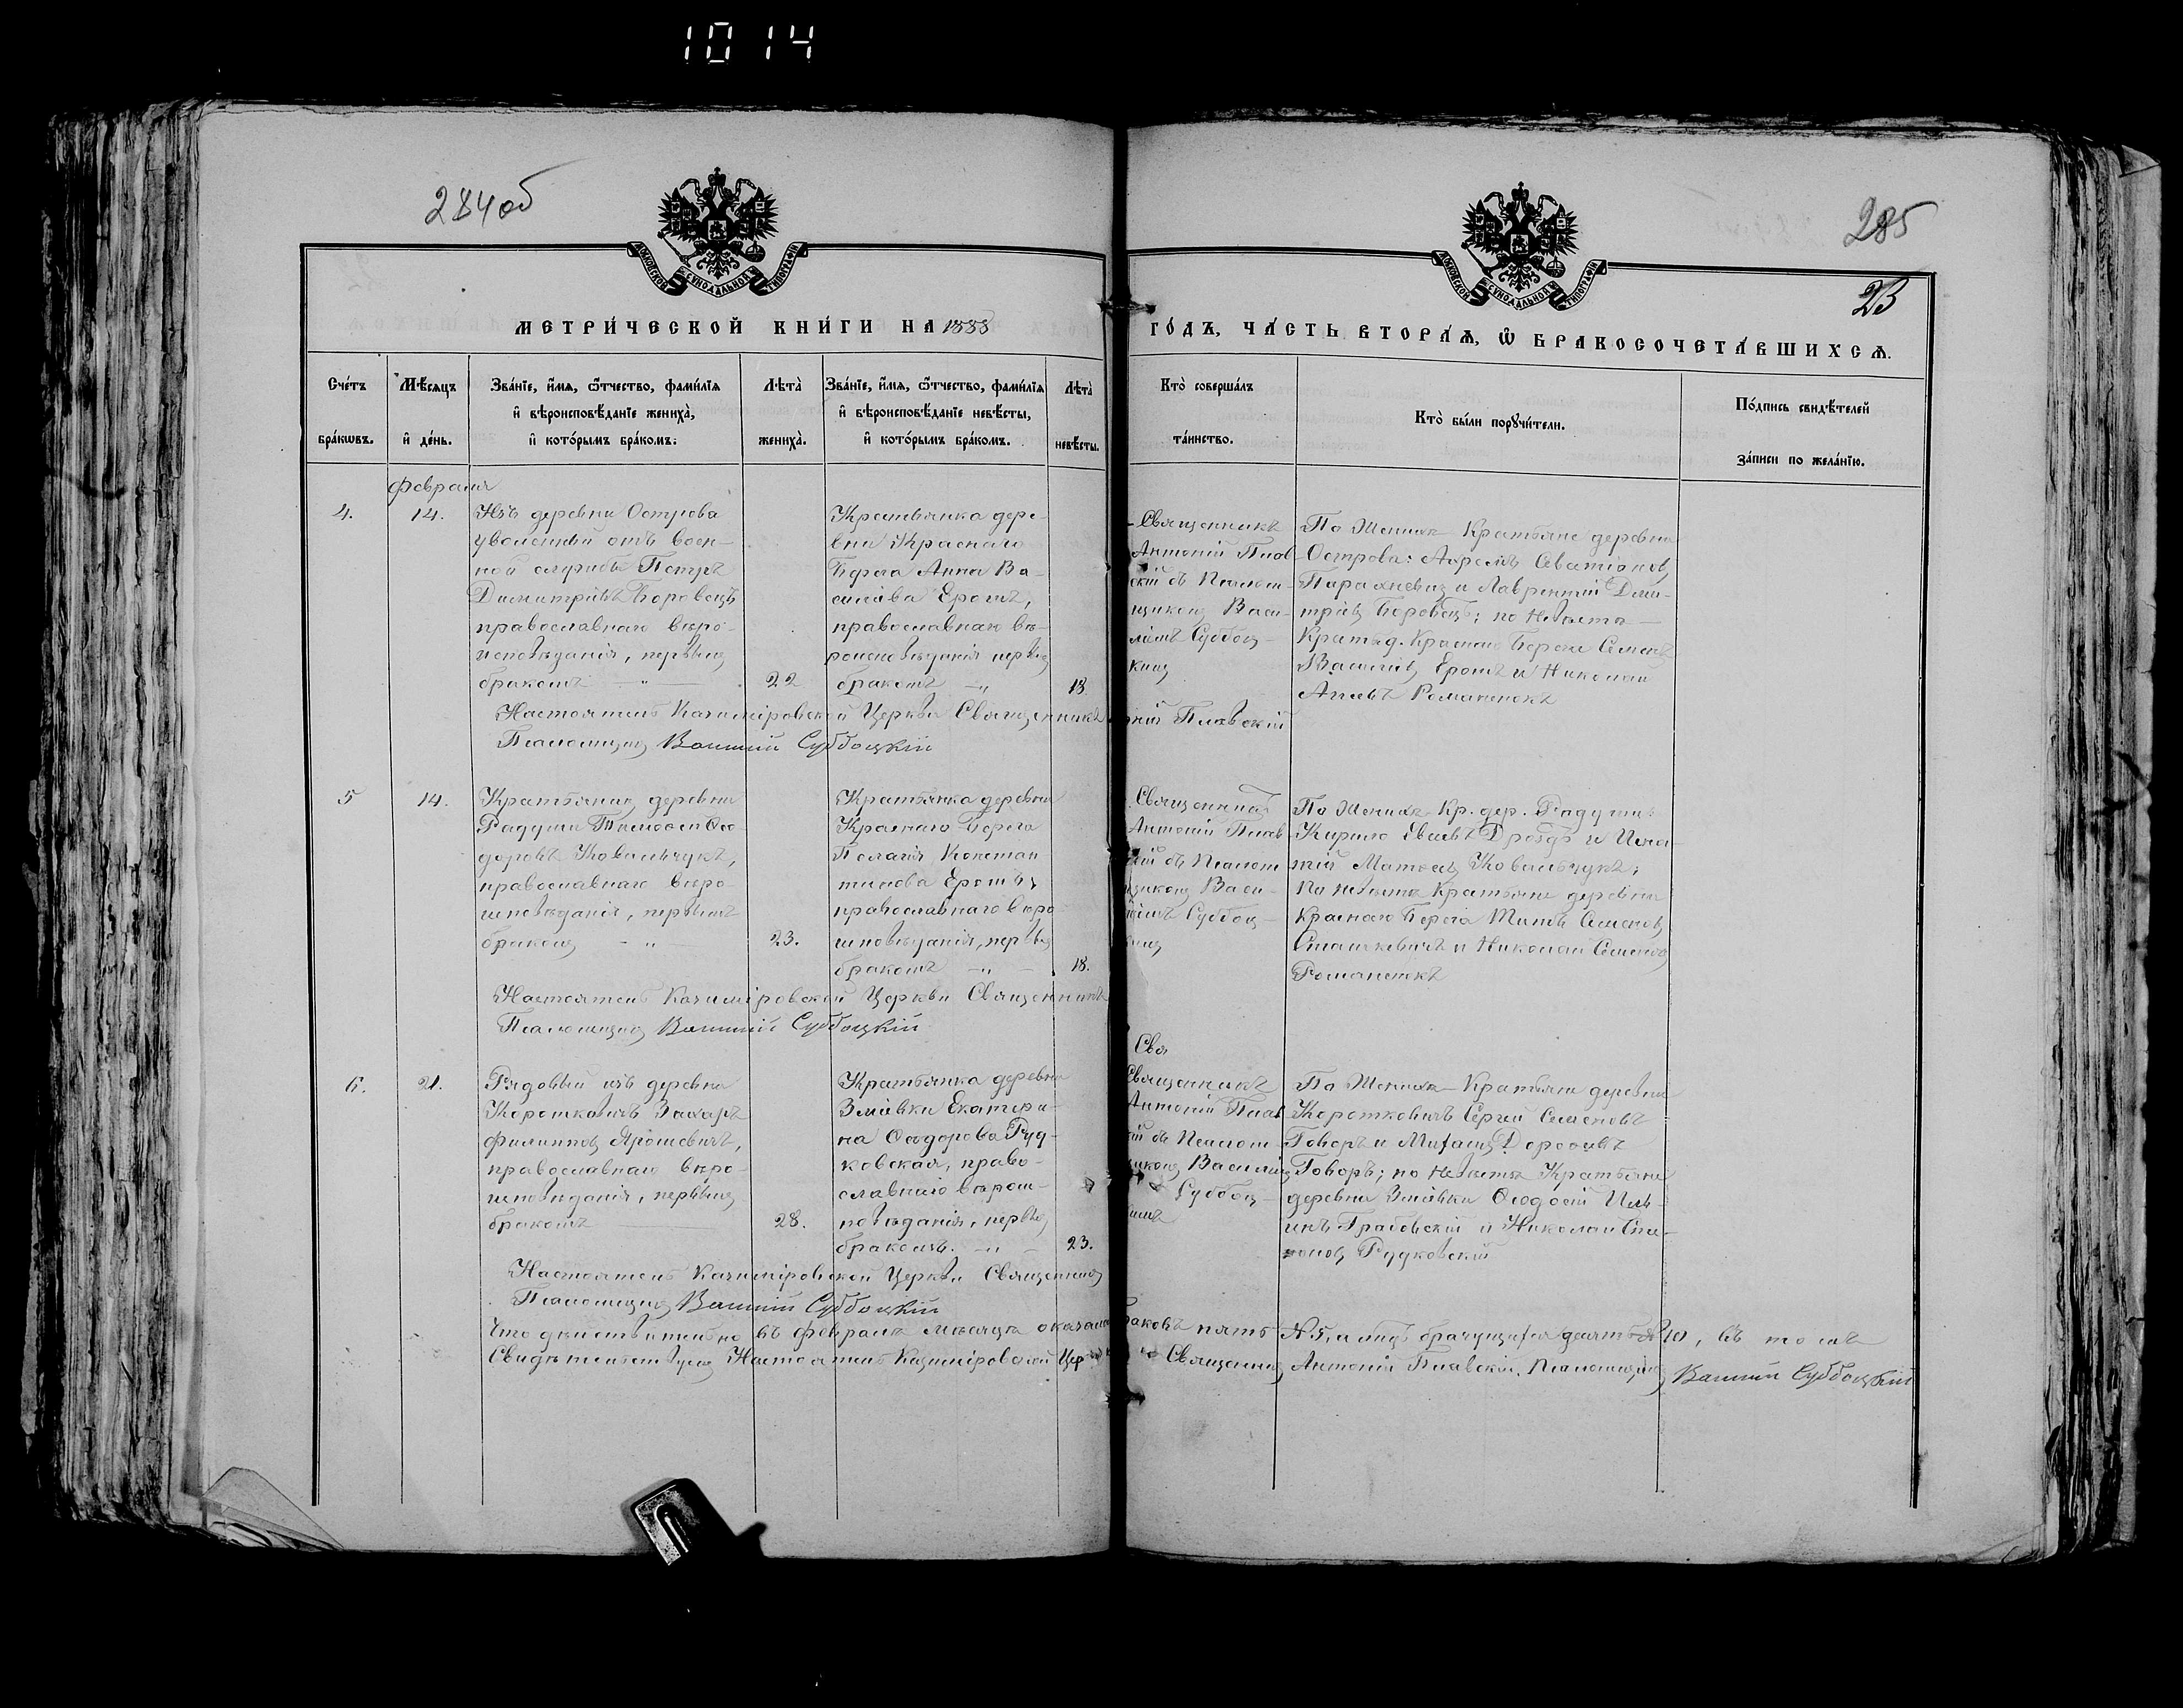 1014
284об
285
23
МОСКОВСКОЙ СѴНОДАЛЬНОЙ ТИПОГРАФІИ
МОСКОВСКОЙ СѴНОДАЛЬНОЙ ТИПОГРАФІИ
МЕТРИ́ЧЕСКОЙ КНИ́ГИ НА 1888
ГО́ДЪ, ЧА́СТЬ ВТОРА́Ѧ, Ѽ БРАКОСОЧЕТА́ВШИХСѦ.
Сче́тъ
бра́кѡвъ.
Мѣ́сяцъ
и҆ де́нь.
Зва́нїе, и҆́мѧ, ѻ҆́тчество, фами́лїѧ
и҆ вѣроисповѣ́данїе жениха̀,
и҆ кото́рымъ бра́комъ.
Лѣта̀
жениха̀.
Зва́нїе, и҆́мѧ, ѻ҆́тчество, фами́лїѧ
и҆ вѣроисповѣ́данїе невѣ́сты,
и҆ кото́рымъ бра́комъ.
Лѣта̀
невѣ́сты.
Кто̀ соверша́лъ
та́инство.
Кто̀ бы́ли порꙋчи́тели.
По́дпись свидѣ́телей
за́писи по жела́нїю.
февраля
4.
14.
Изъ деревни Острова
уволенный отъ воен-
ной службы Петръ
Димитріевъ Боровецъ
православнаго вѣро-
исповѣданія, первымъ
бракомъ — „ —
22
Крестьянка дере-
вни Краснаго
Берега Анна Ва-
сильева Ерошъ,
православнаго вѣ-
роисповѣданія первымъ
бракомъ — „
18
Священникъ
Антоній Плав
скій съ Псалом-
щикомъ Васи-
ліемъ Суббоц-
кимъ
По Женихѣ Крестьяне деревни
Острова:
и Лаврентій Дми-
тріевъ Боровецъ; по Невѣстѣ —
Крест. д. Краснаго Берега Семенъ
Василіевъ Ерошъ и Николай
Романенокъ
Настоятель Казимировской Церкви Священникъ
ній Плавскій
Псаломщикъ Василій Суббоцкій
5
14.
Крестьянинъ деревни
Радуши Тимофей Ѳео-
доровъ Ковальчукъ,
православнаго вѣро-
исповѣданія, первымъ
бракомъ — „ —
23.
Крестьянка деревни
Краснаго Берега
Пелагія Констан
тинова Ерошъ,
православнаго вѣро
исповѣданія, первымъ
бракомъ — „ —
18.
Священникъ
Антоній Плав
скій съ Псалом
щикомъ Васи-
ліемъ Суббоц-
кимъ
По Женихѣ Кр. дер. Радуши:
Кирилъ Дроздъ и Игна-
тій Ковальчукъ;
По Невѣстѣ Крестьяне деревни
Краснаго Берега Титъ Семеновъ
Сташкевичъ и Николай Семеновъ
Романенокъ
Настоятель Казимировской Церкви Священникъ
Псаломщикъ Василій Суббоцкій
6.
21.
Рядовый изъ деревни
Коротковичъ Захаръ
Филипповъ Ярошевичъ,
православнаго вѣро-
исповѣданія, первымъ
бракомъ —
28.
Крестьянка деревни
Змѣевки Екатери-
на Ѳеодорова Руд-
ковская, право-
славнаго вѣроис-
повѣданія, первымъ
бракомъ. — „ —
23.
Свя
Священникъ
Антоній Плав
скій съ Псалом-
щикомъ Василіемъ
Суббоц-
кимъ
По Женихѣ — Крестьяне деревни
Коротковичъ Сергій Семеновъ
Говоръ и Михаилъ Дорофеевъ
Говоръ; по Невѣстѣ Крестьяне
деревни Змѣевки Ѳеодосій Иль-
инъ Грабовскій и Николай Спи-
роновъ Рудковскій
Настоятель Казимировской Церкви Священникъ
Псаломщикъ Василій Суббоцкій
Что дѣйствительно въ февралѣ мѣсяцѣ оказалось
браковъ пять № 5, а лицъ брачущихся десять № 10, въ томъ
Свидѣтельствуемъ Настоятель Казимировской Церкви
Священникъ Антоній Плавскій, Псаломщикъ Василій Суббоцкій